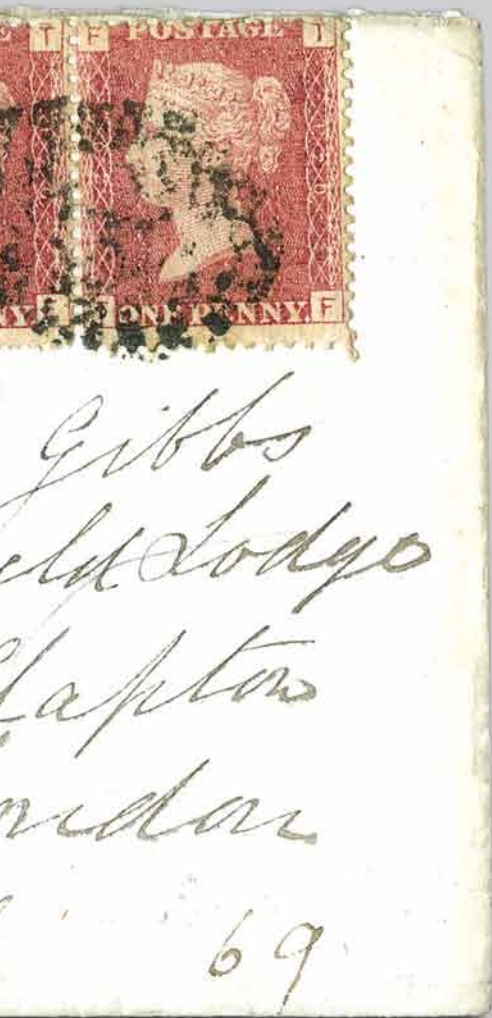 E T F POSTAGE I
NY F I ONE PENNY F
Gibbs
eld Lodge
Clapton
ondon
69